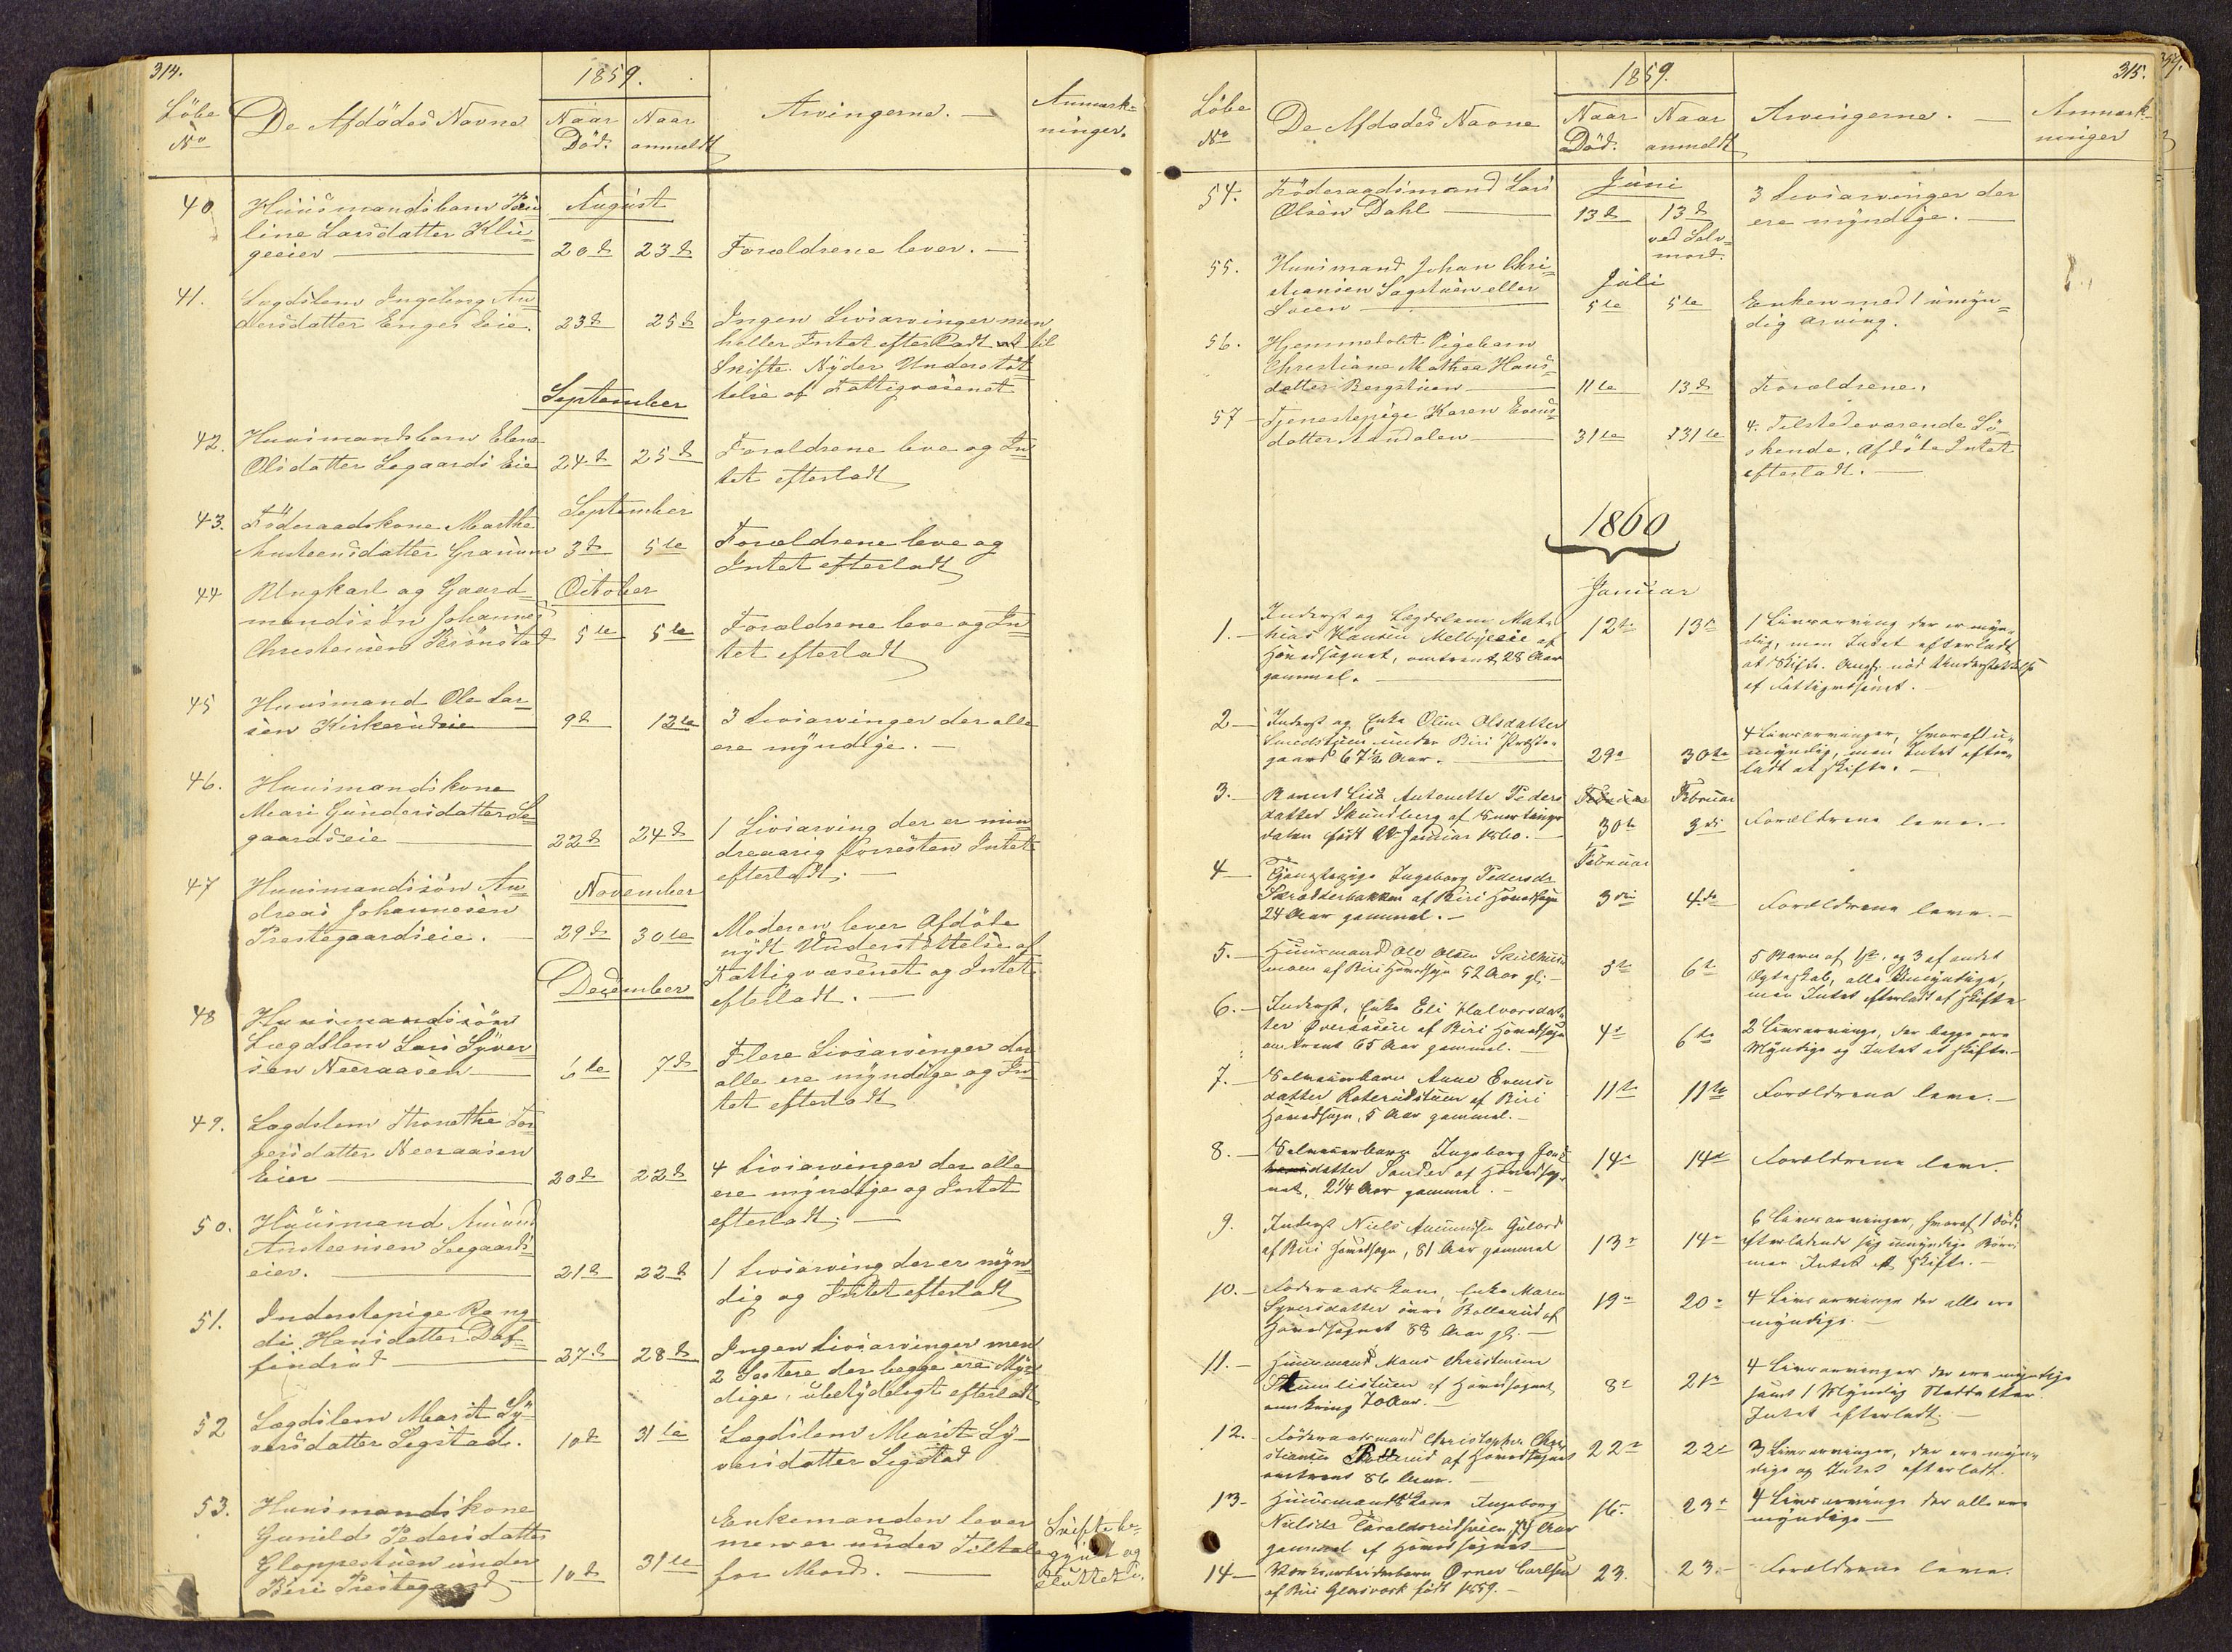 314.
1859.
Löbe
No
De Afdødes Navne
Naar
Død.
Naar
anmeldt
Arvingerne. —
Anmærk-
ninger.
40
Huusmandsbarn Pau
line Larsdatter Klü-
geeier
August
20d
23d
Forældrene lever. —
41.
Lægdslem Ingeborg An-
dersdatter Enges Eie.
23d
25d
Ingen Livsarvinger men
heller Intet efterladt til
Skifte. Nyder Understöt-
telse af Fattigvæsenet
September
42.
Huusmandsbarn Elene
Olsdatter Segaards Eie
24d
25d
Forældrene leve og In-
tet efterladt
September
43.
Föderaadskone Marthe
Austeensdatter Granum
3d
5te
Forældrene leve og
Intet efterladt
44
Ungkarl og Gaard-
mandssön Johannes
Christensen Brönstad
October
5te
5te
Forældrene leve og In-
tet efterladt
45
Huusmand Ole Lar-
sen Kirkerudeie
9d
12te
3 Livsarvinger der alle
ere myndige. —
46.
Huusmandskone
Mari Gundersdatter Se-
gaardseie
22d
24d
1 Livsarving der er min-
dreaarig forresten Intet
efterladt. —
47
Huusmandssön An-
dreas Johannesen
Prestegaardseie.
November
29d
30te
Moderen lever Afdöde
nydt Understöttelse af
Fattigvæsenet og Intet
efterladt. —
December
48
Huusmandssön
Lægdslem Lars Syver-
sen Neeraasen
6te
7d
Flere Livsarvinger der
alle ere myndige og In-
tet efterladt
49.
Lægdslem Thonethe Tor-
gersdatter Neeraasen
Eier
20d
22d
4 Livsarvinger der alle
ere myndige og Intet
efterladt. —
50.
Huusmand Amund
Austeensen Seegaards-
eier.
21d
22d
1 Livsarving der er myn-
dig og Intet efterladt
51.
Inderstepige Rang-
di Hansdatter Daf-
findrud
27d
28d
Ingen Livsarvinger men
2 Søstere der begge ere Myn-
dige, ubetydeligt efterladt
52
Lægdslem Marit Sy-
versdatter Segstad.
10d
31te
Lægdslem Marit Sy-
versdatter Segstad
53.
Huusmandskone
Gunild Pedersdatter
Gloppestuen under
Biri Prestegaard
10d
31te
Enkemanden lever
men er under Tiltale
for Mord. —
Skifte be-
gyndt og
sluttet
315.
1859.
Löbe
No
De Afdødes Navne
Naar
Död.
Naar
anmeldt
Arvingerne. —
Anmærk-
ninger
54.
Föderaadsmand Lars
Olsen Dahl
Juni
13d
13d
ved Selv-
mord.
3 Livsarvinger der
ere myndige. —
55.
Huusmand Johan Chri-
stiansen Sagstuen eller
Sveen
Juli
5te
5te
Enken med 1 umyn-
dig arving.
56.
Hjemmedøbt Pigebarn
Christiane Mathea Hans-
datter Bergstuen
11te
13d
Forældrene.
57
Tjenestepige Karen Evens-
datter Aandalen
31te
31te
4. Tilstedeværende Sö-
skende. Afdöde Intet
efterladt. —
1860
Januar
1. —
Inderst og Lægdslem Mat-
hias Hansen Melbyeie af
Hovedsognet, omtrent 28 Aar
gammel.
12te
13d
1 Livsarving der er myn-
dig, men Intet efterladt
at skifte. Angf. nød Understøttelse
af Fattigvæsenet. —
2 —
Inderst og Enke Oline Olsdatter
Smedstuen under Biri Præste-
gaard 67½ Aar.
29d
30te
4 Livsarvinger, hvoraf 1 u-
myndig, men Intet efter-
ladt at skifte. —
3. —
Barnet Lisa Antonette Peders
datter Skundberg af Snertinge
dalen født 22 Januar 1860. —
30te
Februar
3die
Forældrene leve. —
4 —
Tjenestepige Ingeborg Pedersdr
Skrædderbakken af Biri Hovedsogn
24 Aar gammel. —
Februar
3die
4de
Forældrene leve. —
5. —
Huusmand Ole Olsen Skulhuus-
moen af Biri Hovedsogn 52 Aar gl. —
5te
6te
5 Børn af 1ste og 3 af andet
Ægteskab, alle Umyndige,
men Intet efterladt at skifte
6. —
Inderst, Enke Eli Halvorsdat-
ter Øveraaseie af Biri Hovedsogn
omtrent 65 Aar gammel. —
4d
6te
2 Livsarvinge, der begge ere
Myndige og Intet at skifte. —
7. —
Selveierbarn Anne Evens-
datter Roterudstuen af Biri
Hovedsogn, 5 Aar gammel. —
11te
11te
Forældrene leve. —
8. —
Selveierbarn Ingeborg
datter Sander af Hovedsog-
net, 2¼ Aar gammel. —
14d
14d
Forældrene leve.
9.
Inderst Niels Amundsen Gulord
af Biri Hovedsogn, 81 Aar gammel
13d
14d
6 Livsarvinger, hvoraf 1 død
efterladende sig umyndige Børn
men Intet at skifte. —
10. —
Føderaadskone, Enke Maren
Syversdatter övre Bollerud af
Hovedsognet 88 Aar gl. —
19d
20d
4 Livsarvinge der alle ere
myndige. —
11. —
Huusmand Mons Christensen
af Hovedsognet
omkring 70 Aar. —
8d
21d
4 Livsarvinger der ere myndige
samt 1 Myndig Steddatter.
Intet efterladt. —
12. —
Føderaadsmand Christopher Chri-
stiansen af Hovedsognet
omtrent 86 Aar. —
22d
22d
3 Livsarvinger, der ere myn-
dige og Intet efterladt.
13 —
Huusmandskone Ingeborg
Nielsdr Taraldsrudsveen, 74 Aar
gammel af Hovedsognet
16.
23d
4 Livsarvinge der alle ere
myndige —
14 —
Værksarbeiderbarn Ornes Carlsen
af Biri Glasværk født 1859. —
23.
23. —
Forældrene leve.